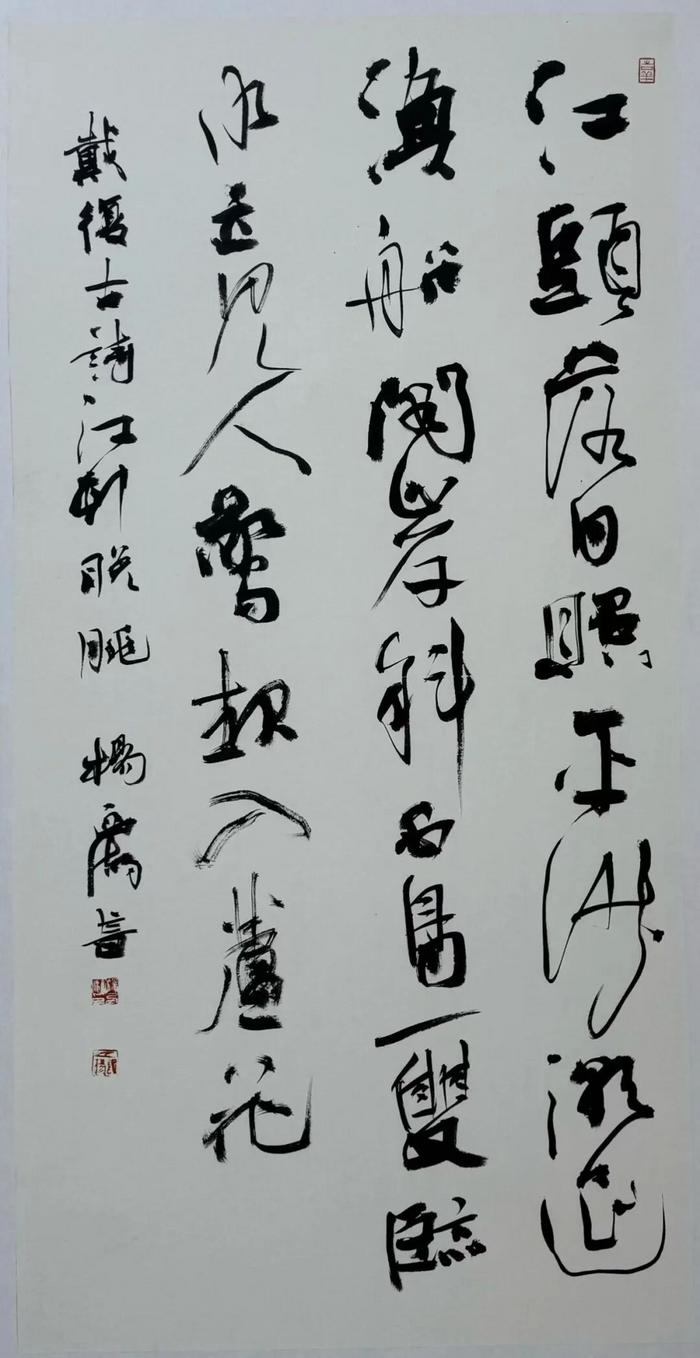 江頭落日照平沙潮退
漁船閣岸斜白鳥一雙臨
水立見人驚起入蘆花
戴復古詩江村晚眺 楊